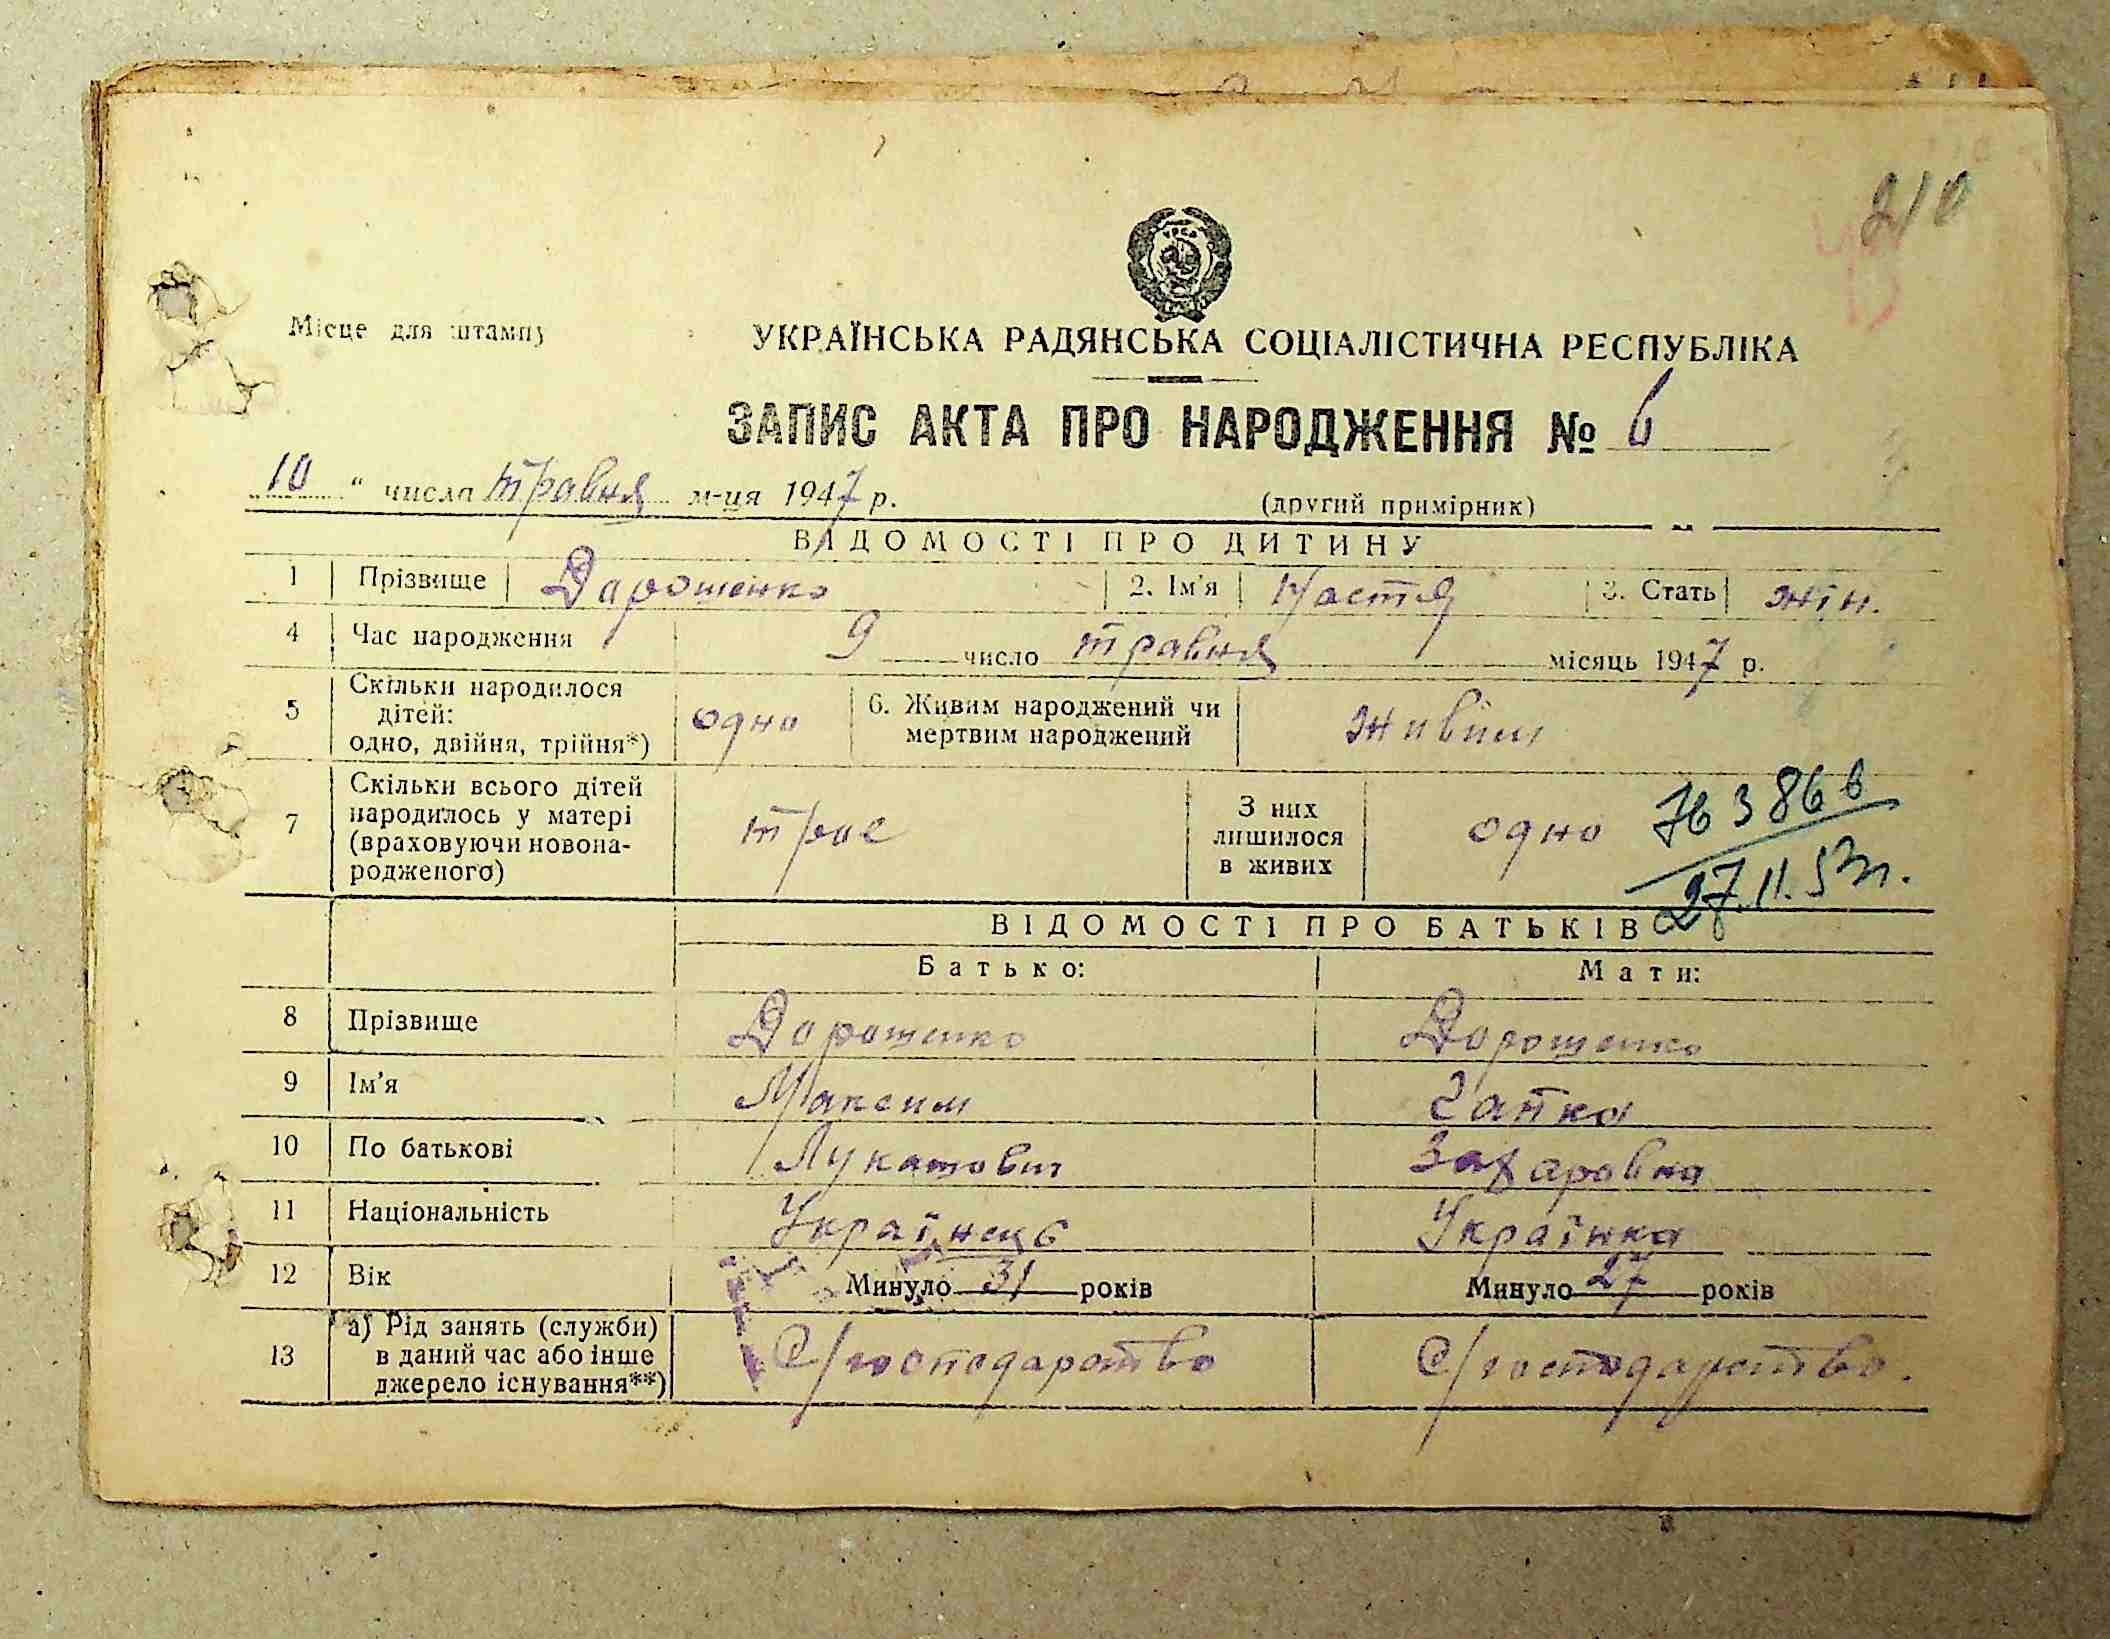 210
УРСР
Місце для штампу
УКРАЇНСЬКА РАДЯНСЬКА СОЦІАЛІСТИЧНА РЕСПУБЛІКА
ЗАПИС АКТА ПРО НАРОДЖЕННЯ № 6
10 " числа травня м-ця 1947 р. (другий примірник)
ВІДОМОСТІ ПРО ДИТИНУ
1 Прізвище Дарошенко 2. Ім'я Настя 3. Стать жін.
4 Час народження 9 число травня місяць 1947 р.
5 Скільки народилося дітей: одно, двійня, трійня*) одно 6. Живим народжений чи мертвим народжений живим
7 Скільки всього дітей народилось у матері (враховуючи новонародженого) троє З них лишилося в живих одно
763866
27.11.53г.
ВІДОМОСТІ ПРО БАТЬКІВ
Батько: Мати:
8 Прізвище Дорошенко Дорошенко
9 Ім'я Максим Гапка
10 По батькові Захаровна
11 Національність Українець Українка
12 Вік Минуло 31 років Минуло 27 років
13 а) Рід занять (служби) в даний час або інше джерело існування**) С/господарство С/господарство.